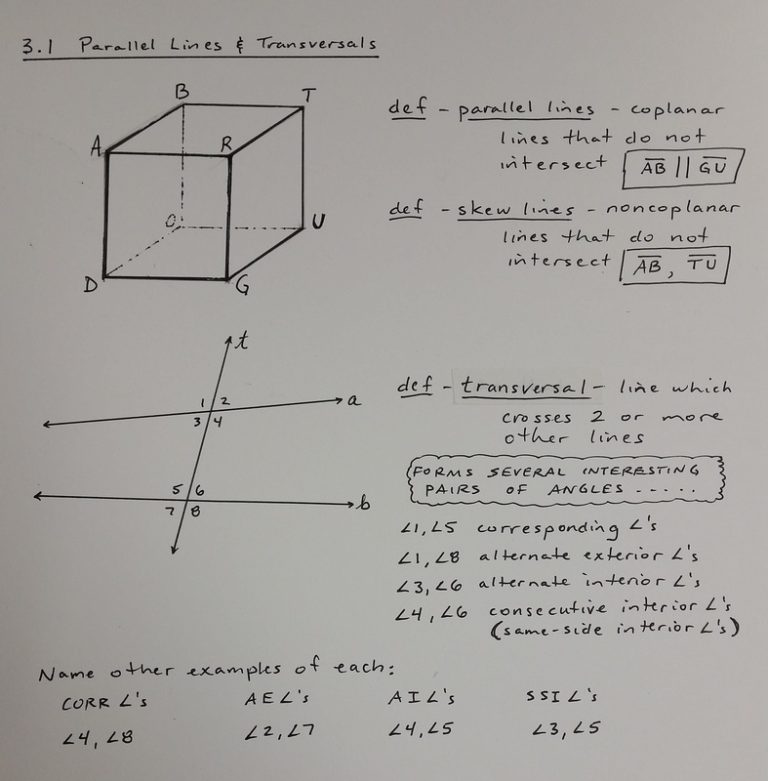 3.1 Parallel Lines & Transversals
B
T
A
R
O
U
D
G
def - parallel lines - coplanar
lines that do not
intersect A̅B̅ || G̅U̅
def - skew lines - noncoplanar
lines that do not
intersect A̅B̅, T̅U̅
t
1 2
a
3 4
5 6
b
7 8
def - transversal - line which
crosses 2 or more
other lines
FORMS SEVERAL INTERESTING
PAIRS OF ANGLES .....
∠1, ∠5 corresponding ∠'s
∠1, ∠8 alternate exterior ∠'s
∠3, ∠6 alternate interior ∠'s
∠4, ∠6 consecutive interior ∠'s
(same-side interior ∠'s)
Name other examples of each:
CORR ∠'s AE∠'s AI∠'s SSI∠'s
∠4, ∠8 ∠2, ∠7 ∠4, ∠5 ∠3, ∠5